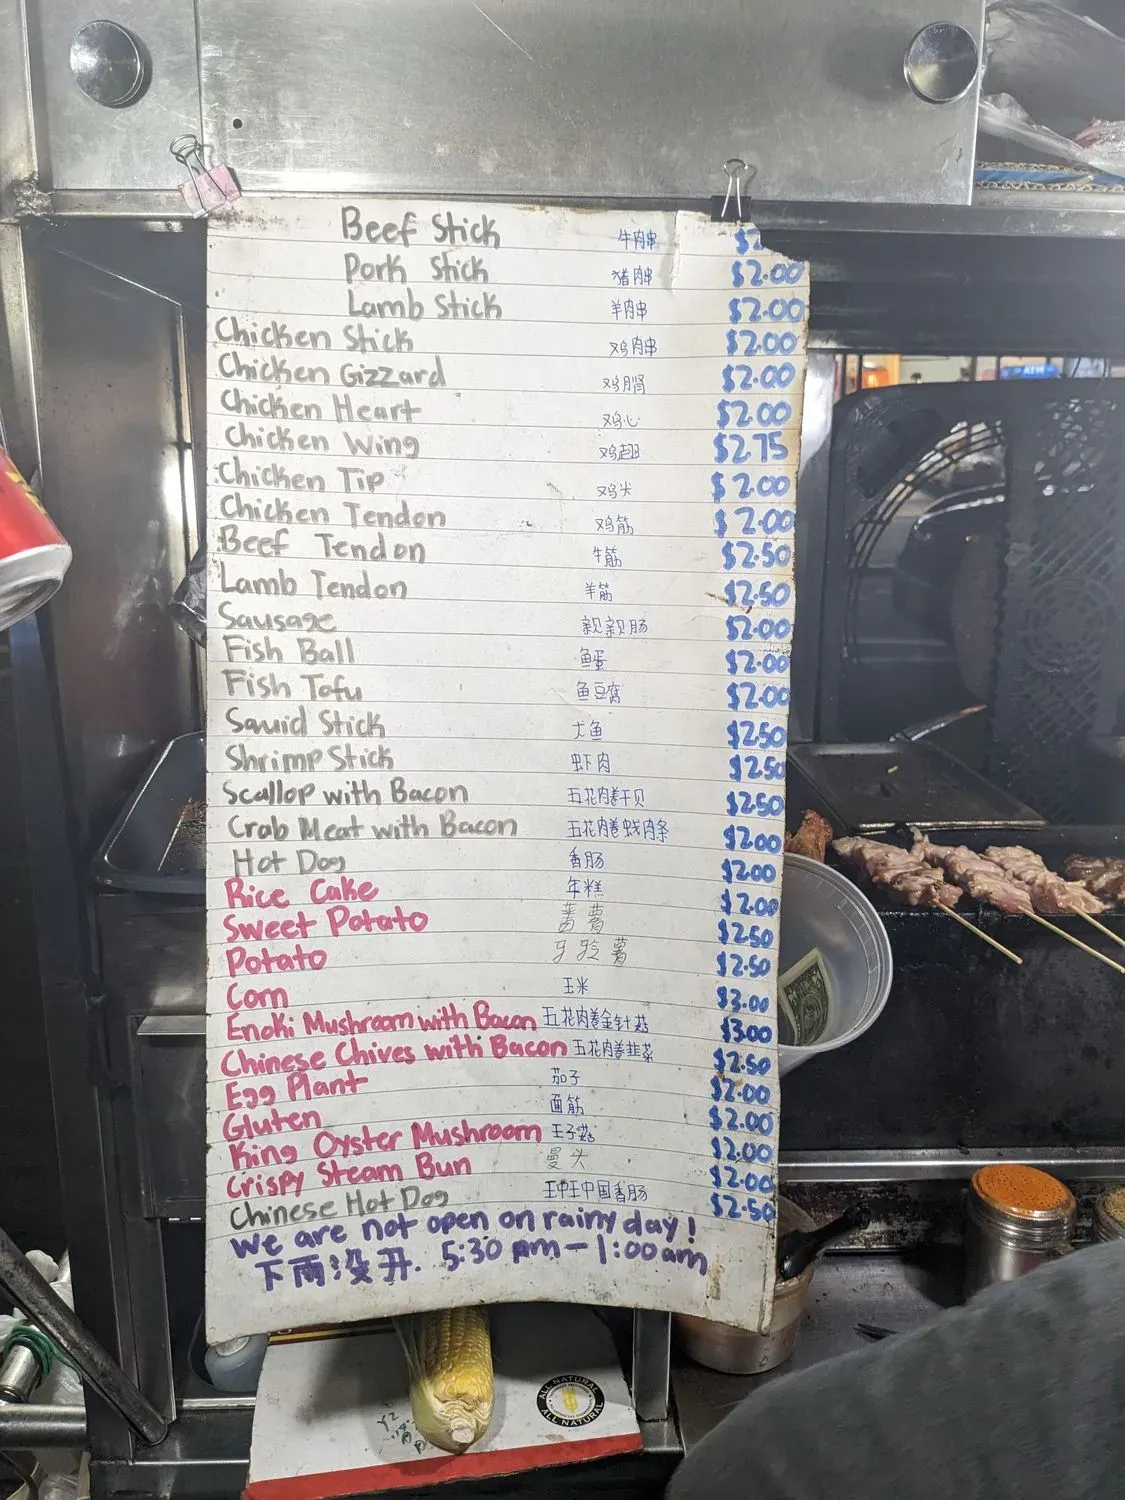 Beef Stick 牛肉串 $2
Pork Stick 猪肉串 $2.00
Lamb Stick 羊肉串 $2.00
Chicken Stick 鸡肉串 $2.00
Chicken Gizzard 鸡腎 $2.00
Chicken Heart 鸡心 $2.00
Chicken Wing 鸡翅 $2.75
Chicken Tip 鸡尖 $2.00
Chicken Tendon 鸡筋 $2.00
Beef Tendon 牛筋 $2.50
Lamb Tendon 羊筋 $2.50
Sausage 亲亲肠 $2.00
Fish Ball 鱼蛋 $2.00
Fish Tofu 鱼豆腐 $2.00
Squid Stick 尤鱼 $2.50
Shrimp Stick 虾肉 $2.50
Scallop with Bacon 五花肉卷干贝 $2.50
Crab Meat with Bacon 五花肉卷 肉条 $2.00
Hot Dog 香肠 $2.00
Rice Cake 年糕 $2.00
Sweet Potato 薯 $2.50
Potato 薯 $2.50
Corn 玉米 $3.00
Enoki Mushroom with Bacon 五花肉卷金针菇 $3.00
Chinese Chives with Bacon 五花肉卷韭菜 $2.50
Egg Plant 茄子 $2.00
Gluten 面筋 $2.00
King Oyster Mushroom 王子菇 $2.00
Crispy Steam Bun 曼头 $2.00
Chinese Hot Dog 王中王中国香肠 $2.50
We are not open on rainy day!
下雨没开. 5:30 pm - 1:00 am
ALL NATURAL
ALL NATURAL
ATM